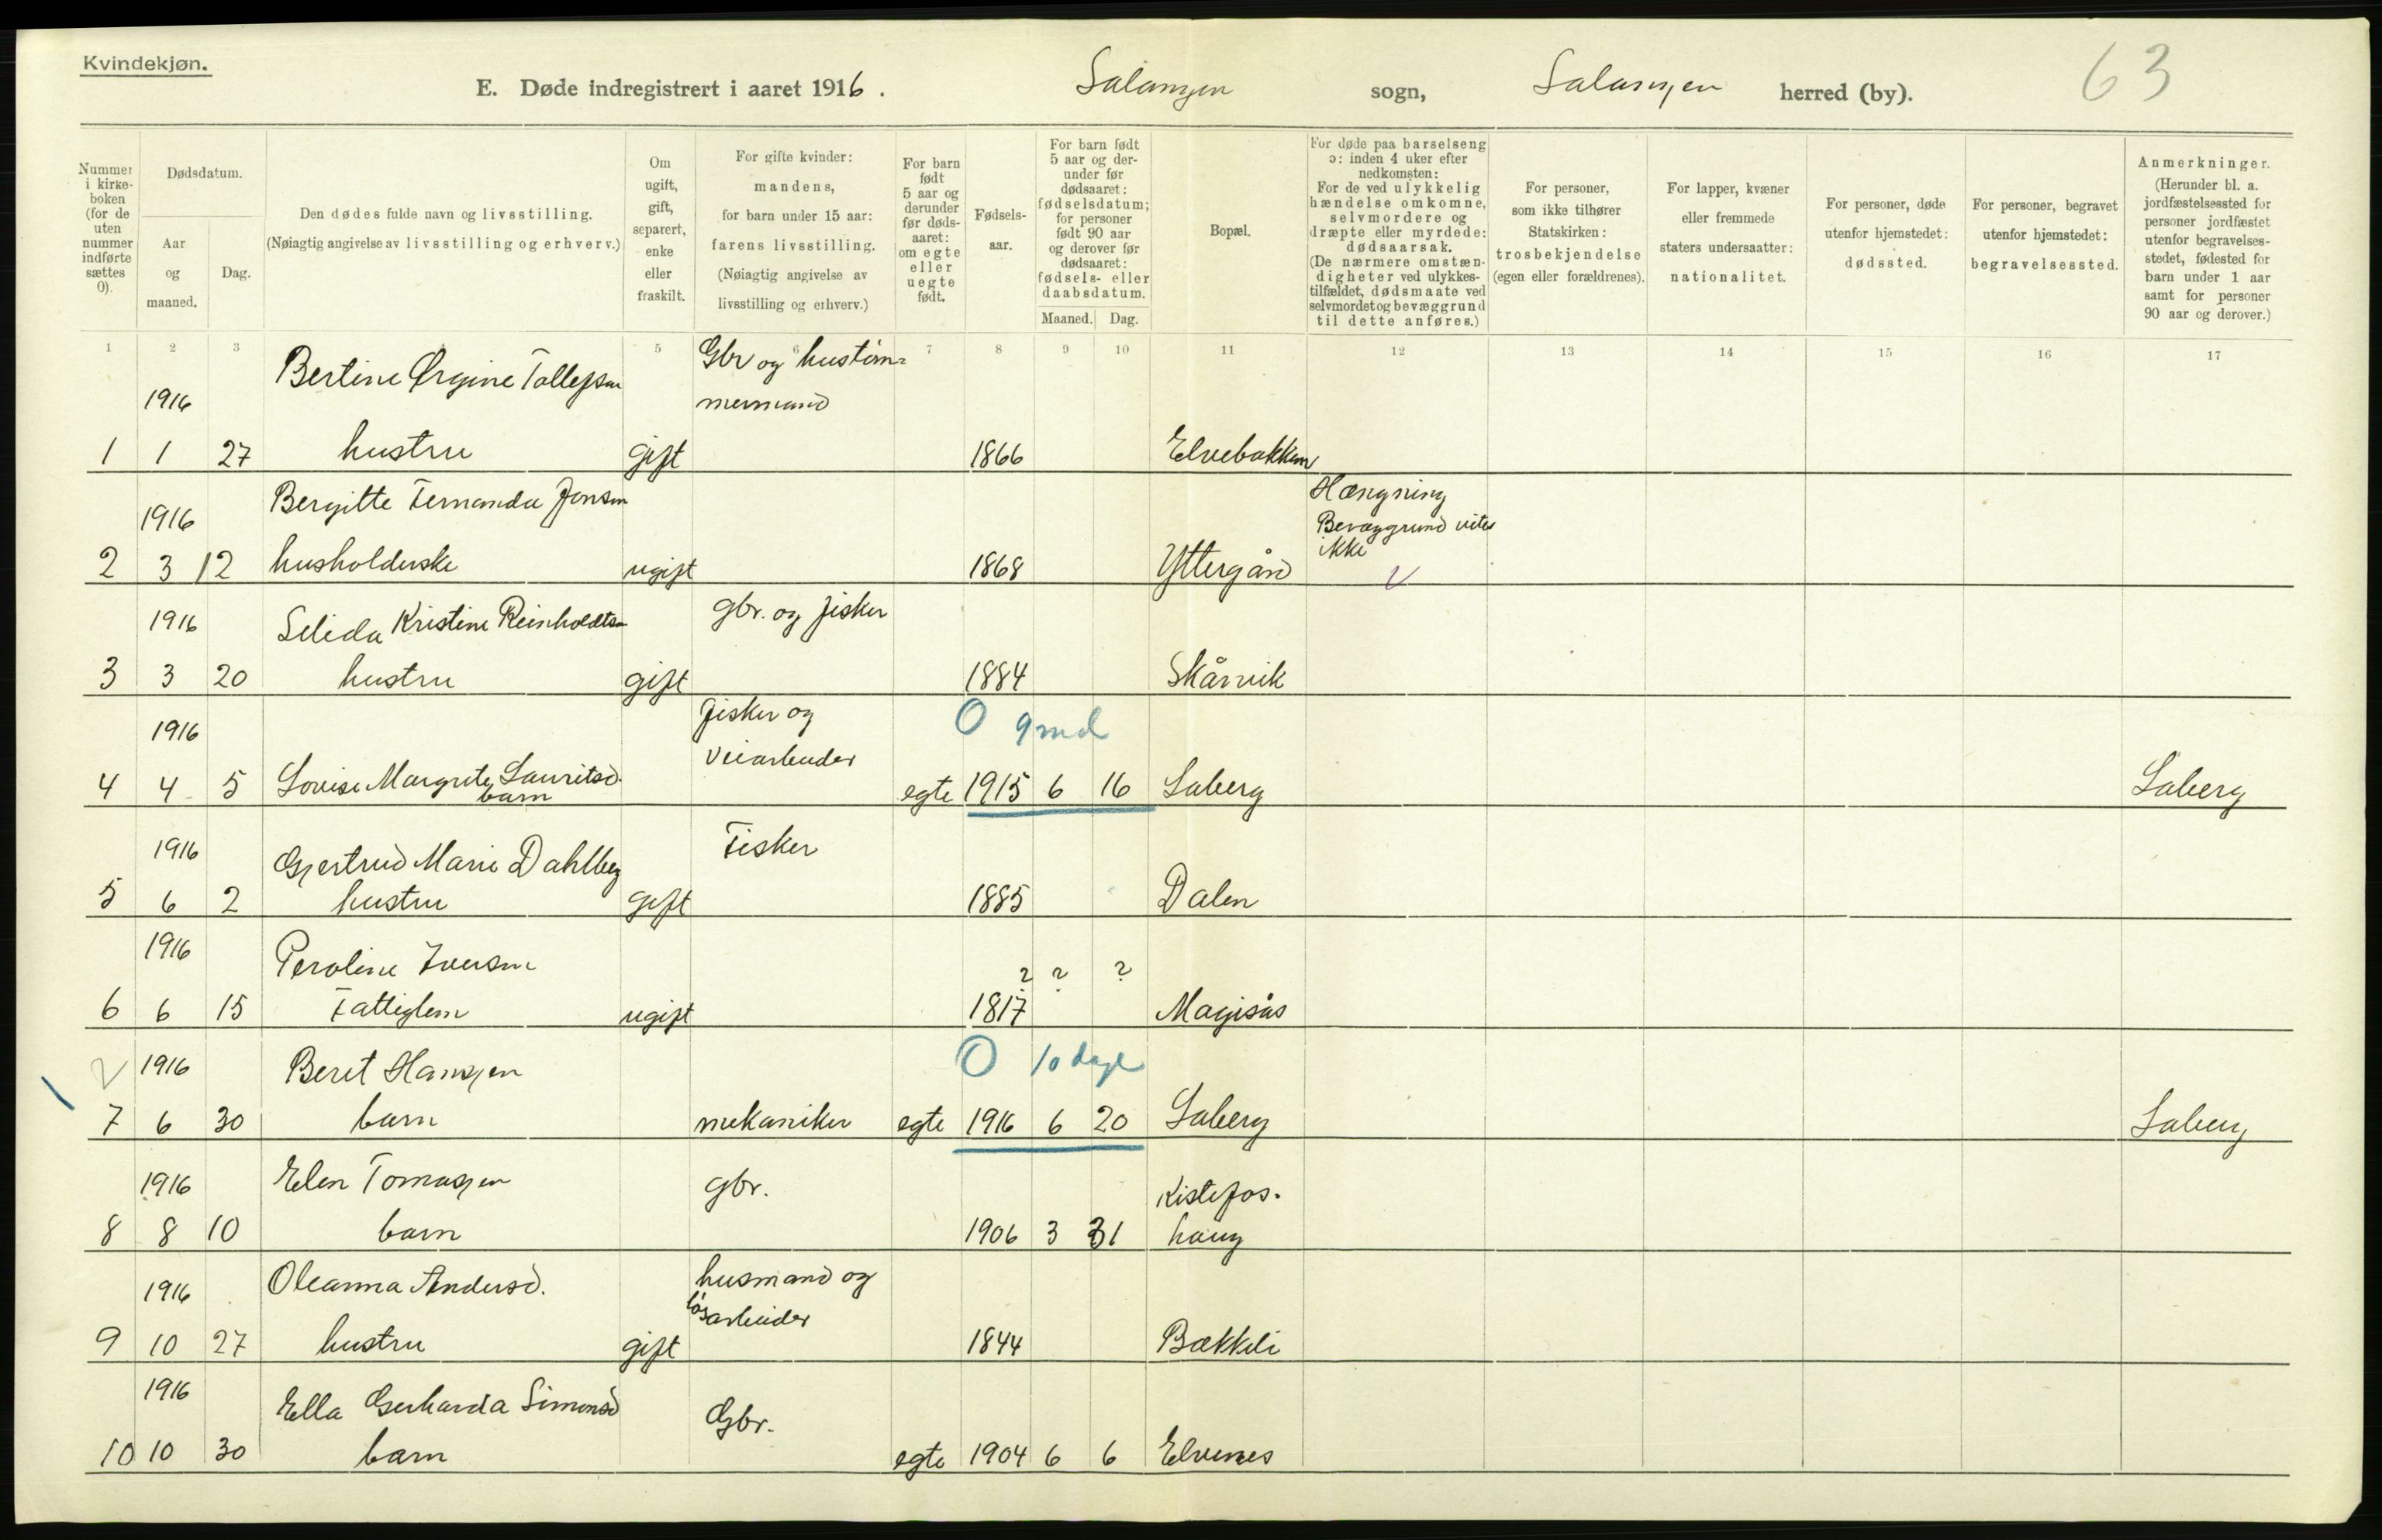 Kvindekjøn.
E. Døde indregistrert i aaret 1916. Salangen sogn, Salangen herred (by). 63
Nummer i kirkeboken (for de uten nummer indførte sættes 0).
Dødsdatum.
Aar og maaned.
Dag.
Den dødes fulde navn og livsstilling.
(Nøiagtig angivelse av livsstilling og erhverv.)
Om ugift, gift, separert, enke eller fraskilt.
For gifte kvinder: mandens, for barn under 15 aar: farens livsstilling.
(Nøiagtig angivelse av livsstilling og erhverv.)
For barn født 5 aar og derunder før dødsaaret: om egte eller uegte født.
Fødselsaar.
For barn født 5 aar og derunder før dødsaaret: fødselsdatum; for personer født 90 aar og derover før dødsaaret: fødsels- eller daabsdatum.
Maaned. Dag.
Bopæl.
For døde paa barselseng ɔ: inden 4 uker efter nedkomsten: For de ved ulykkelig hændelse omkomne, selvmordere og dræpte eller myrdede: dødsaarsak.
(De nærmere omstændigheter ved ulykkestilfældet, dødsmaate ved selvmordet og bevæggrund til dette anføres.)
For personer, som ikke tilhører Statskirken: trosbekjendelse (egen eller forældrenes).
For lapper, kvæner eller fremmede staters undersaatter: nationalitet.
For personer, døde utenfor hjemstedet: dødssted.
For personer, begravet utenfor hjemstedet: begravelsessted.
Anmerkninger.
(Herunder bl. a. jordfæstelsessted for personer jordfæstet utenfor begravelsesstedet, fødested for barn under 1 aar samt for personer 90 aar og derover.)
1 2 3 5 6 7 8 9 10 11 12 13 14 15 16 17
1916 Bertine Ørgine Tollefsen Gbr og hustømmermand
1 1 27 hustru gift 1866 Elvebakken
1916 Bergitte Fernanda Jensen Hængning Bevæggrund vites ikke
2 3 12 husholderske ugift 1868 Yttergård
1916 Selida Kristine Reinholdtsen gbr. og fisker
3 3 20 hustru gift 1884 Skårvik
1916 fisker og veiarbeider 0 9 md
4 4 5 Lovise Margrete Lauritsd. barn egte 1915 6 16 Saberg Saberg
1916 Gjertrud Marie Dahlberg Fisker
5 6 2 hustru gift 1885 Dalen
1916 Peroline Iversen ? ? ?
6 6 15 Fattiglem ugift 1817 Magisås
1916 Beret Hansen 0 10 dage
7 6 30 barn mekaniker egte 1916 6 20 Saberg Saberg
1916 Elen Tomassen gbr. Kistefos-
8 8 10 barn 1906 3 31 haug
1916 Oleanna Andersd. husmand og løsarbeider
9 10 27 hustru gift 1844 Bækkeli
1916 Ella Gerharda Simonsd Gbr.
10 10 30 barn egte 1904 6 6 Elvenes